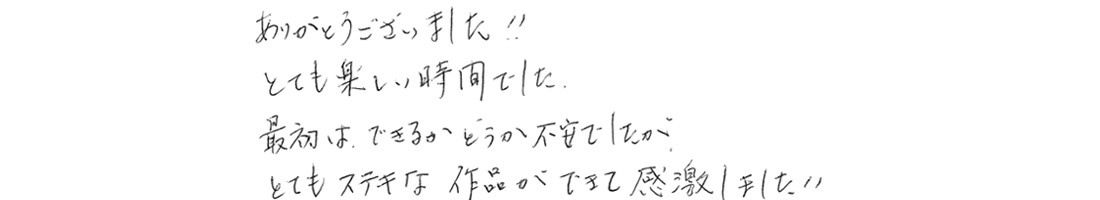 ありがとうございました!!
とても楽しい時間でした.
最初は、できるかどうか不安でしたが、
とてもステキな作品ができて感激しました!!